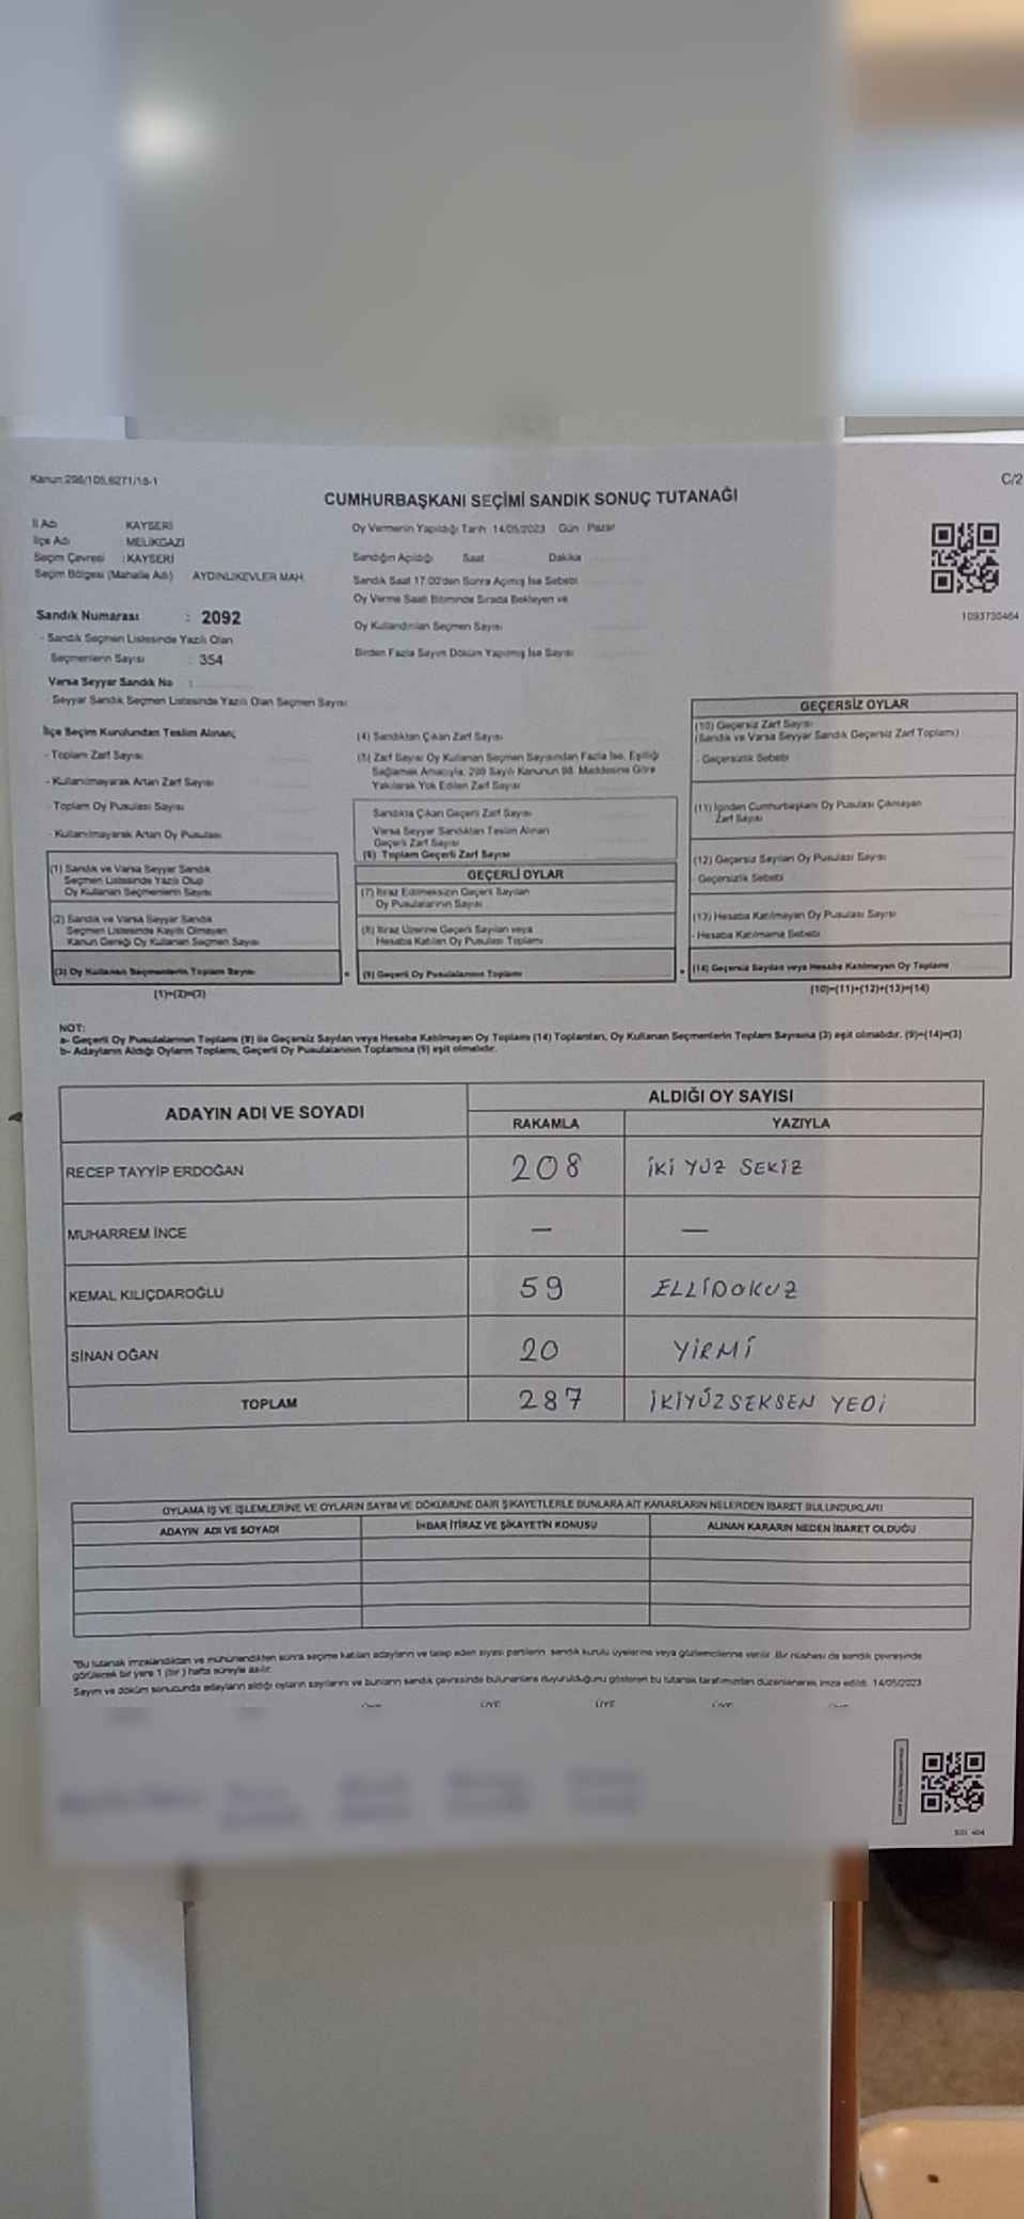 Kanun:298/105,6271/15-1
C/2
CUMHURBAŞKANI SEÇİMİ SANDIK SONUÇ TUTANAĞI
İl Adı KAYSERİ
İlçe Adı MELİKGAZİ
Seçim Çevresi : KAYSERİ
Seçim Bölgesi (Mahalle Adı) AYDINLIKEVLER MAH.
Sandık Numarası : 2092
- Sandık Seçmen Listesinde Yazılı Olan
Seçmenlerin Sayısı : 354
Varsa Seyyar Sandık No :
- Seyyar Sandık Seçmen Listesinde Yazılı Olan Seçmen Sayısı
Oy Vermenin Yapıldığı Tarih 14/05/2023 Gün : Pazar
Sandığın Açıldığı Saat Dakika
Sandık Saat 17.00'den Sonra Açılmış İse Sebebi
Oy Verme Saati Bitiminde Sırada Bekleyen ve
Oy Kullandırılan Seçmen Sayısı
Birden Fazla Sayım Döküm Yapılmış İse Sayısı
1093730464
İlçe Seçim Kurulundan Teslim Alınan;
- Toplam Zarf Sayısı
- Kullanılmayarak Artan Zarf Sayısı
- Toplam Oy Pusulası Sayısı
- Kullanılmayarak Artan Oy Pusulası
(1) Sandık ve Varsa Seyyar Sandık
Seçmen Listesinde Yazılı Olup
Oy Kullanan Seçmenlerin Sayısı
(2) Sandık ve Varsa Seyyar Sandık
Seçmen Listesinde Kayıtlı Olmayan
Kanun Gereği Oy Kullanan Seçmen Sayısı
(3) Oy Kullanan Seçmenlerin Toplam Sayısı
(1)+(2)=(3)
(4) Sandıktan Çıkan Zarf Sayısı
(5) Zarf Sayısı Oy Kullanan Seçmen Sayısından Fazla İse, Eşitliği
Sağlamak Amacıyla, 298 Sayılı Kanunun 98. Maddesine Göre
Yakılarak Yok Edilen Zarf Sayısı
Sandıkta Çıkan Geçerli Zarf Sayısı
Varsa Seyyar Sandıktan Teslim Alınan
Geçerli Zarf Sayısı
(6) Toplam Geçerli Zarf Sayısı
GEÇERLİ OYLAR
(7) İtiraz Edilmeksizin Geçerli Sayılan
Oy Pusulalarının Sayısı
(8) İtiraz Üzerine Geçerli Sayılan veya
Hesaba Katılan Oy Pusulası Toplamı
(9) Geçerli Oy Pusulalarının Toplamı
GEÇERSİZ OYLAR
(10) Geçersiz Zarf Sayısı
(Sandık ve Varsa Seyyar Sandık Geçersiz Zarf Toplamı)
- Geçersizlik Sebebi
(11) İçinden Cumhurbaşkanı Oy Pusulası Çıkmayan
Zarf Sayısı
(12) Geçersiz Sayılan Oy Pusulası Sayısı
- Geçersizlik Sebebi
(13) Hesaba Katılmayan Oy Pusulası Sayısı
- Hesaba Katılmama Sebebi
(14) Geçersiz Sayılan veya Hesaba Katılmayan Oy Toplamı
(10)+(11)+(12)+(13)=(14)
NOT:
a- Geçerli Oy Pusulalarının Toplamı (9) ile Geçersiz Sayılan veya Hesaba Katılmayan Oy Toplamı (14) Toplamları, Oy Kullanan Seçmenlerin Toplam Sayısına (3) eşit olmalıdır. (9)+(14)=(3)
b- Adayların Aldığı Oyların Toplamı, Geçerli Oy Pusulalarının Toplamına (9) eşit olmalıdır.
ADAYIN ADI VE SOYADI ALDIĞI OY SAYISI
RAKAMLA YAZIYLA
RECEP TAYYİP ERDOĞAN 208 İKİ YÜZ SEKİZ
MUHARREM İNCE — —
KEMAL KILIÇDAROĞLU 59 ELLİDOKUZ
SİNAN OĞAN 20 YİRMİ
TOPLAM 287 İKİYÜZSEKSEN YEDİ
OYLAMA İŞ VE İŞLEMLERİNE VE OYLARIN SAYIM VE DÖKÜMÜNE DAİR ŞİKAYETLERLE BUNLARA AİT KARARLARIN NELERDEN İBARET BULUNDUKLARI
ADAYIN ADI VE SOYADI İHBAR İTİRAZ VE ŞİKAYETİN KONUSU ALINAN KARARIN NEDEN İBARET OLDUĞU
"Bu tutanak imzalandıktan ve mühürlendikten sonra seçime katılan adayların ve talep eden siyasi partilerin sandık kurulu üyelerine veya gözlemcilerine verilir. Bir nüshası da sandık çevresinde
görülecek bir yere 1 (bir) hafta süreyle asılır.
Sayım ve döküm sonucunda adayların aldığı oyların sayılarını ve bunların sandık çevresinde bulunanlara duyurulduğunu gösteren bu tutanak tarafımızdan düzenlenerek imza edildi. 14/05/2023
ÜYE ÜYE